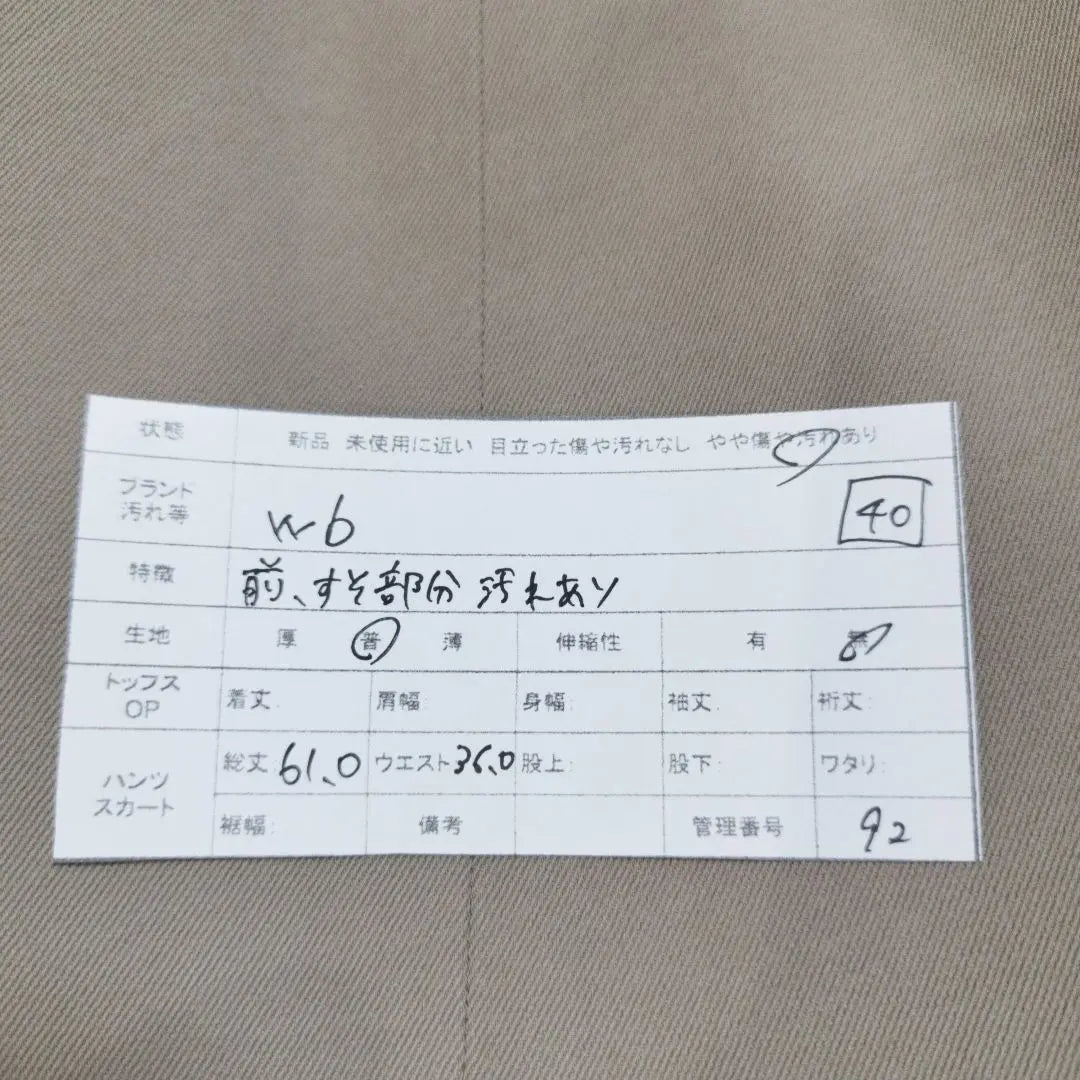 状態 新品 未使用に近い 目立った傷や汚れなし やや傷や汚れあり
ブランド
汚れ等 wb 40
特徴 前、すそ部分 汚れあり
生地 厚 普 薄 伸縮性 有 無
トップス
OP 着丈: 肩幅: 身幅: 袖丈: 裄丈:
パンツ
スカート 総丈 61.0 ウエスト 36.0 股上: 股下: ワタリ:
裾幅: 備考 管理番号 92